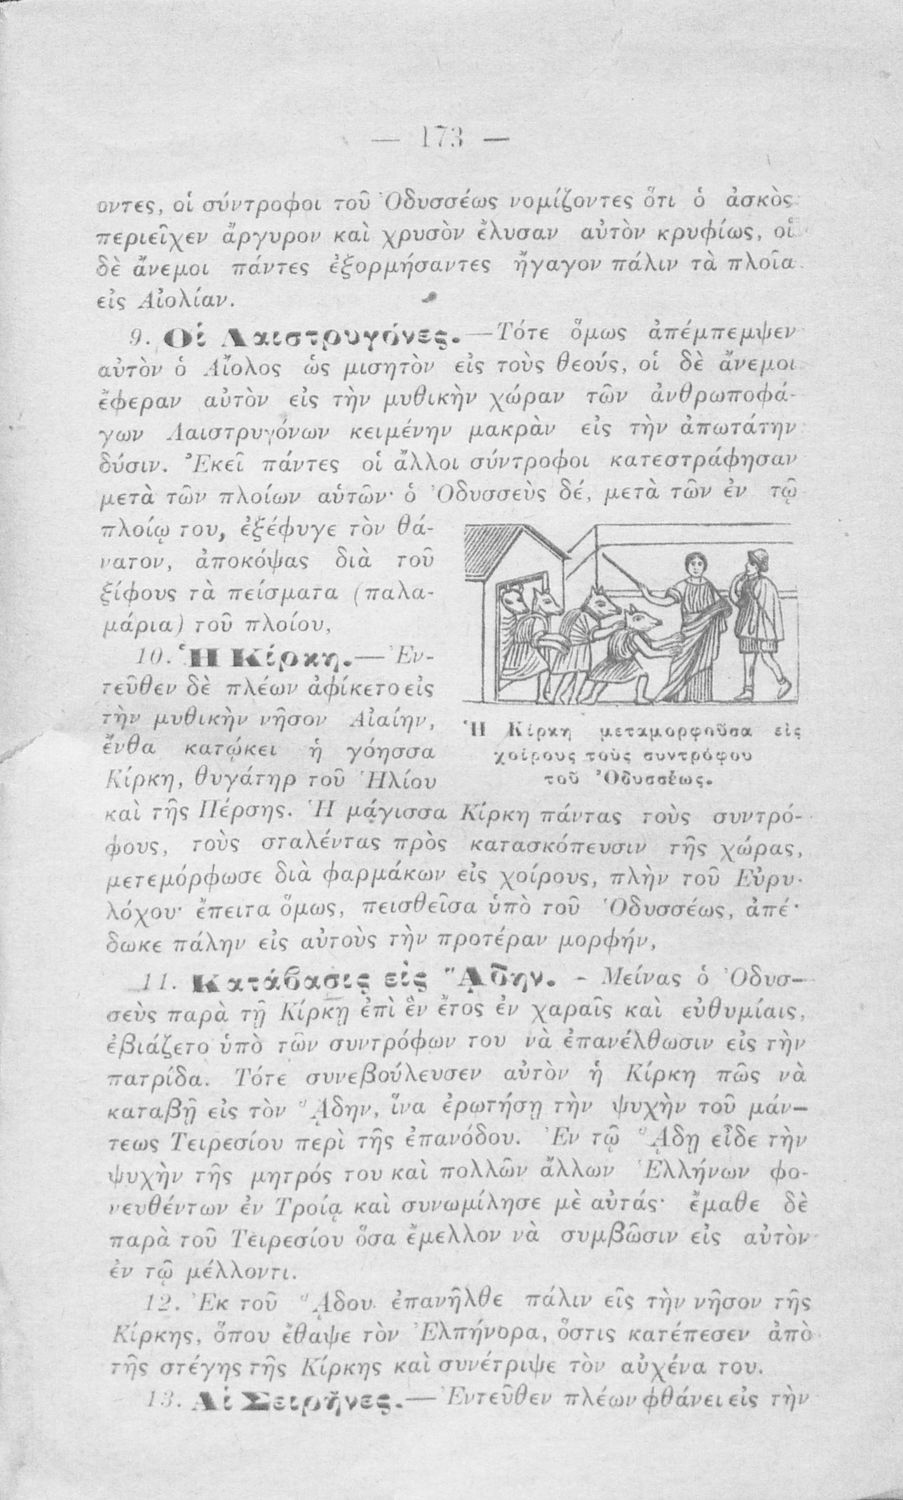 — 173 —
οντες, οἱ σύντροφοι τοῦ Ὀδυσσέως νομίζοντες ὅτι ὁ ἀσκὸς
περιεῖχεν ἄργυρον καὶ χρυσὸν ἔλυσαν αὐτὸν κρυφίως, οἱ
δὲ ἄνεμοι πάντες ἐξορμήσαντες ἤγαγον πάλιν τὰ πλοῖα
εἰς Αἰολίαν.
9. Οἱ Λαιστρυγόνες.—Τότε ὅμως ἀπέμπεμψεν
αὐτὸν ὁ Αἴολος ὡς μισητὸν εἰς τοὺς θεούς, οἱ δὲ ἄνεμοι
ἔφεραν αὐτὸν εἰς τὴν μυθικὴν χώραν τῶν ἀνθρωποφά-
γων Λαιστρυγόνων κειμένην μακρὰν εἰς τὴν ἀπωτάτην
δύσιν. Ἐκεῖ πάντες οἱ ἄλλοι σύντροφοι κατεστράφησαν
μετὰ τῶν πλοίων αὐτῶν· ὁ Ὀδυσσεὺς δέ, μετὰ τῶν ἐν τῷ
πλοίῳ του, ἐξέφυγε τὸν θά-
νατον, ἀποκόψας διὰ τοῦ
ξίφους τὰ πείσματα (παλα-
μάρια) τοῦ πλοίου,
10. Ἡ Κίρκη.— Ἐν-
τεῦθεν δὲ πλέων ἀφίκετο εἰς
τὴν μυθικὴν νῆσον Αἰαίην,
ἔνθα κατῴκει ἡ γόησσα
Κίρκη, θυγάτηρ τοῦ Ἡλίου
Ἡ Κίρκη μεταμορφοῦσα εἰς
χοίρους τοὺς συντρόφου
τοῦ Ὀδυσσέως.
καὶ τῆς Πέρσης. Ἡ μάγισσα Κίρκη πάντας τοὺς συντρό-
φους, τοὺς σταλέντας πρὸς κατασκόπευσιν τῆς χώρας,
μετεμόρφωσε διὰ φαρμάκων εἰς χοίρους, πλὴν τοῦ Εὐρυ-
λόχου· ἔπειτα ὅμως, πεισθεῖσα ὑπὸ τοῦ Ὀδυσσέως, ἀπέ-
δωκε πάλην εἰς αὐτοὺς τὴν προτέραν μορφήν,
11. Κατάβασις εἰς Ἅδην. - Μείνας ὁ Ὀδυσ-
σεὺς παρὰ τῇ Κίρκῃ ἐπὶ ἓν ἔτος ἐν χαραῖς καὶ εὐθυμίαις,
ἐβιάζετο ὑπὸ τῶν συντρόφων του νὰ ἐπανέλθωσιν εἰς τὴν
πατρίδα. Τότε συνεβούλευσεν αὐτὸν ἡ Κίρκη πῶς νὰ
καταβῇ εἰς τὸν Ἅδην, ἵνα ἐρωτήσῃ τὴν ψυχὴν τοῦ μάν-
τεως Τειρεσίου περὶ τῆς ἐπανόδου. Ἐν τῷ Ἅδῃ εἶδε τὴν
ψυχὴν τῆς μητρός του καὶ πολλῶν ἄλλων Ἑλλήνων φο-
νευθέντων ἐν Τροίᾳ καὶ συνωμίλησε μὲ αὐτάς· ἔμαθε δὲ
παρὰ τοῦ Τειρεσίου ὅσα ἔμελλον νὰ συμβῶσιν εἰς αὐτὸν
ἐν τῷ μέλλοντι.
12. Ἐκ τοῦ Ἅδου ἐπανῆλθε πάλιν εἰς τὴν νῆσον τῆς
Κίρκης, ὅπου ἔθαψε τὸν Ἐλπήνορα, ὅστις κατέπεσεν ἀπὸ
τῆς στέγης τῆς Κίρκης καὶ συνέτριψε τὸν αὐχένα του.
13. Αἱ Σειρῆνες.— Ἐντεῦθεν πλέων φθάνει εἰς τὴν